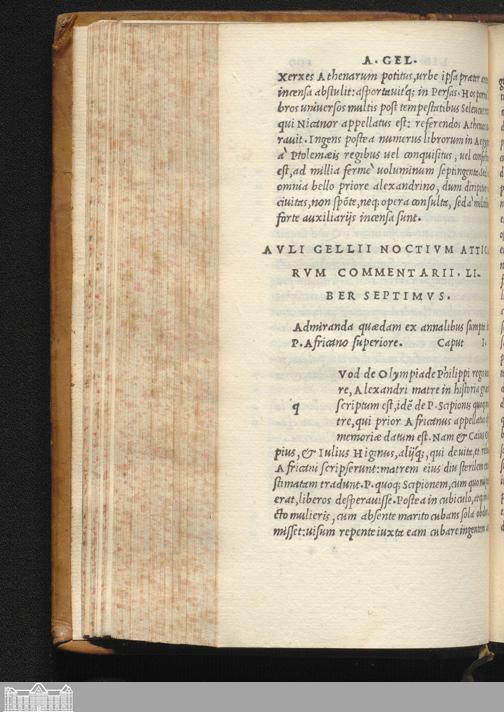 A. GEL.
Xerxes Athenarum potitus, urbe ipsa præter
incensa abstulit: asportauitq; in Persas. Hos
bros uniuersos multis post tempestatibus
qui Nicanor appellatus est: referendos
rauit. Ingens postea numerus librorum in
à Ptolemæis regibus uel conquisitus, uel
est, ad millia fermè uoluminum septingenta.
omnia bello priore alexandrino, dum
ciuitas, non spōte, neq; opera consulta, sed à
forte auxiliarijs incensa sunt.
AVLI GELLII NOCTIVM ATTIC
RVM COMMENTARII. LI-
BER SEPTIMVS.
Admiranda quædam ex annalibus sumpta
P. Africano superiore. Caput I.
Vod de Olympiade Philippi
re, Alexandri matre in historia
q scriptum est, idē de P. Scipionis
tre, qui prior Africanus
memoriæ datum est. Nam & Caius
pius, & Iulius Higinus, alijq;, qui de uita, et
Africani scripserunt: matrem eius diu sterilem
stimatam tradunt. P. quoq; Scipionem, cum quo
erat, liberos desperauisse. Postea in cubiculo,
cto mulieris, cum absente marito cubans sola
misset: uisum repente iuxta eam cubare ingentem